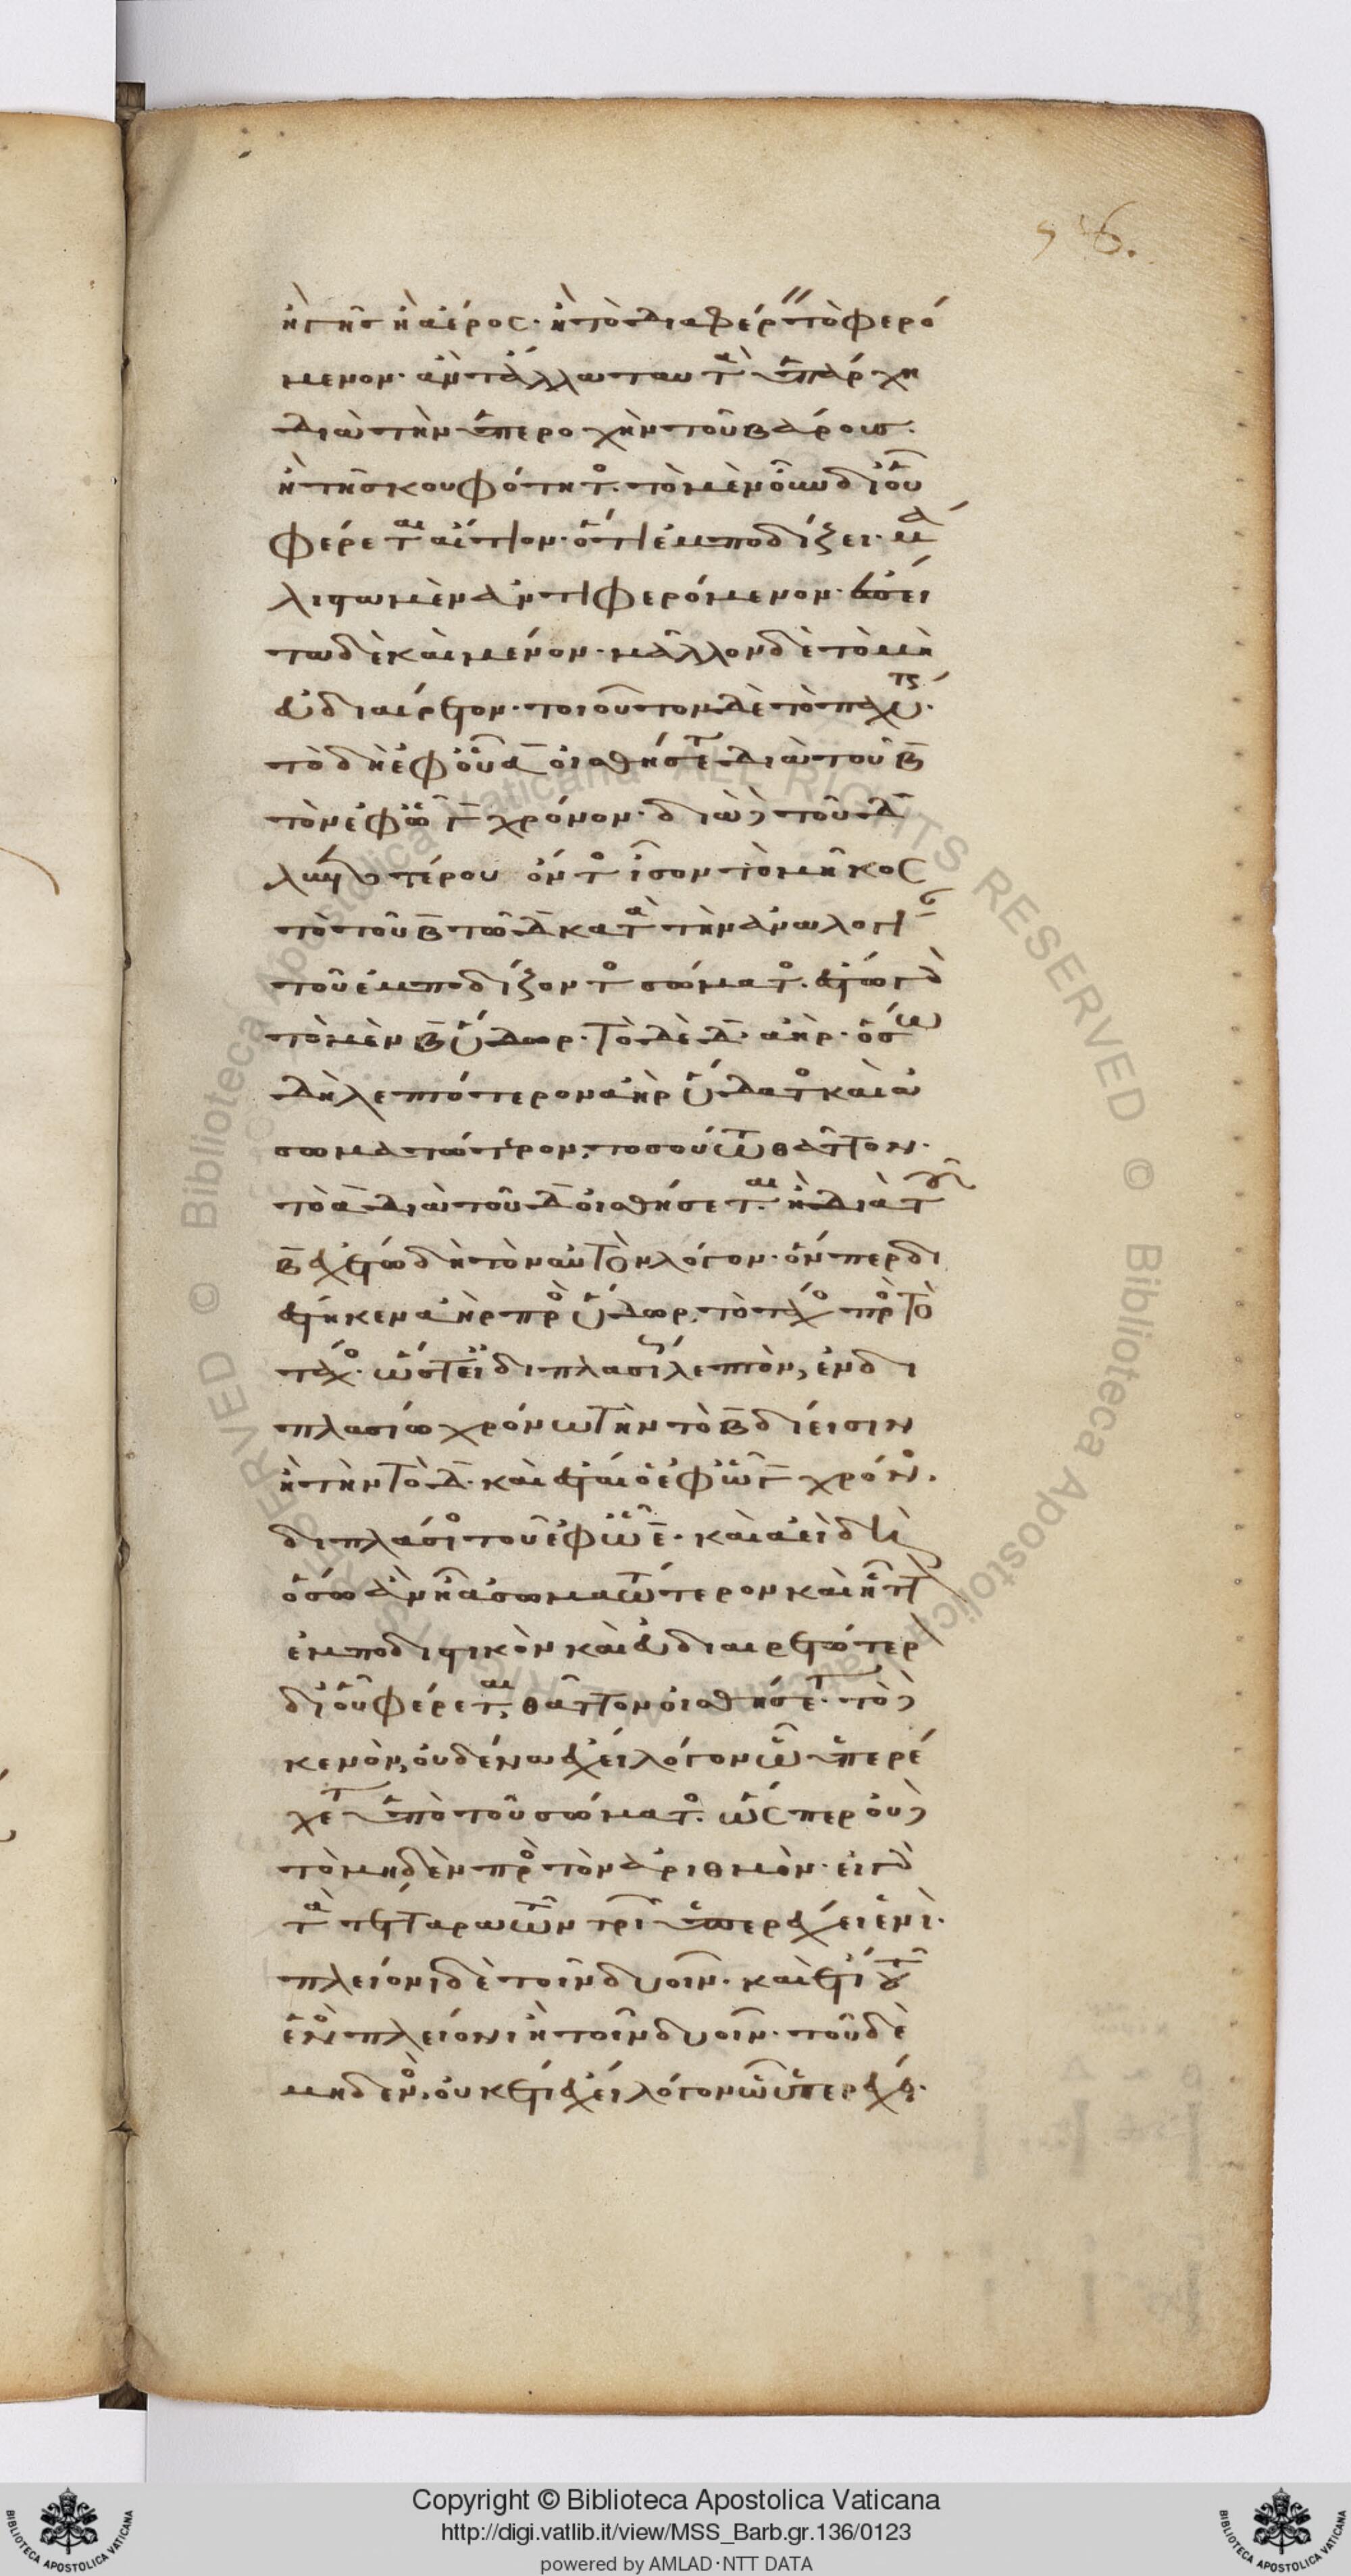 56.
ἢ γῆς ἢ ἀέρος· ἢ τὸ διαφέρειν τὸ φερό
μενον· ἂν τἄλλα ταυτὰ ὑπάρχη
διὰ τὴν ὑπεροχὴν τοῦ βάρους.
ἢ τῆς κουφότητος. τὸ μὲν οὖν δι' οὗ
φέρεται αἴτιον· ὅτι ἐμποδίζει· μά
λιστα μὲν ἀντιφερόμενον· ἔπει
τα δὲ καὶ μένον· μᾶλλον δὲ τὸ μὴ
εὐδιαίρετον· τοιοῦτον δὲ τὸ παχύτερον.
τὸ δὴ ἐφ' οὗ α οἰσθήσεται διὰ τοῦ β
τὸν ἐφ' ᾧ γ χρόνον· διὰ δὲ τοῦ δ
λεπτοτέρου ὄντος ἴσον τὸ μῆκος
τὸ τοῦ β τῶ δ κατὰ τὴν ἀναλογίαν
τοῦ ἐμποδίζοντος σώματος. ἔστω γὰρ
τὸ μὲν β ὕδωρ. τὸ δὲ δ ἀήρ· ὅσω
δὴ λεπτότερον ἀὴρ ὕδατος καὶ ἀ
σωματώτερον, τοσούτω θᾶττον·
τὸ α διὰ τοῦ δ οἰσθήσεται. ἢ διὰ τοῦ
β ἐχέτω δὴ τὸν αὐτὸν λόγον· ὅνπερ δι
έστηκεν ἀὴρ πρὸς ὕδωρ. τὸ τάχος πρὸς τὸ
τάχος. ὥστε εἰ διπλασίως λεπτὸν, ἐν δι
πλασίω χρόνω τὴν τὸ β δίεισιν
ἢ τὴν τὸ δ. καὶ ἔσται ὁ ἐφ' ᾧ γ χρόνος.
διπλάσιος τοῦ ἐφ' ᾧ ε. καὶ ἀεὶ δὴ
ὅσω ἂν ἦ ἀσωματώτερον καὶ ἧττον
ἐμποδιστικὸν καὶ εὐδιαιρετώτερον
δι' οὗ φέρεται, θᾶττον οἰσθήσεται. τὸ δὲ
κενὸν, οὐδένα ἔχει λόγον ᾧ ὑπερέ
χεται ὑπὸ τοῦ σώματος. ὥσπερ οὐδὲ
τὸ μηδὲν πρὸς τὸν ἀριθμὸν· εἰ γὰρ
τὰ τέτταρα τῶν τριῶν ὑπερέχει ἑνὶ.
πλείονι δὲ τοῖν δυοῖν. καὶ ἔτι τοῦ
ἑνὸς πλείονι ἢ τοῖν δυοῖν. τοῦ δὲ
μηδενὸς. οὐκέτι ἔχει λόγον ᾧ ὑπερέχει.
Copyright © Biblioteca Apostolica Vaticana
http://digi.vatlib.it/view/MSS_Barb.gr.136/0123
powered by AMLAD·NTT DATA